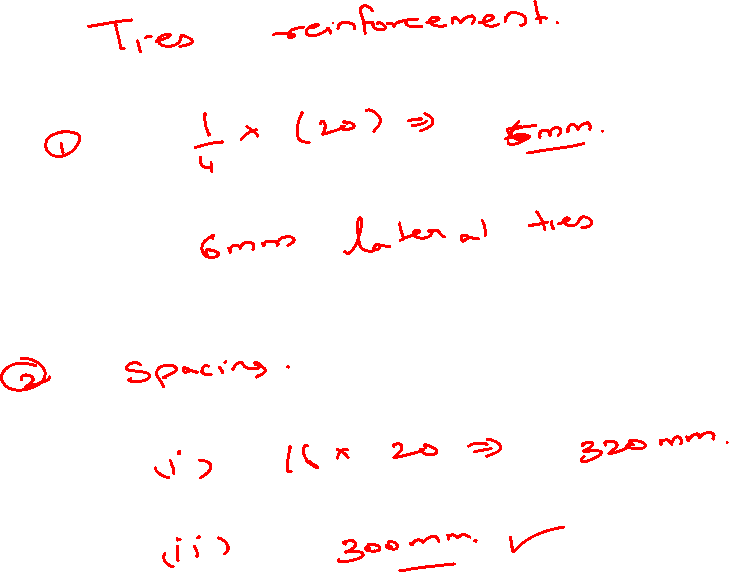 Ties reinforcement.
① 1/4 × (20) ⇒ 5mm.
6mm lateral ties
② Spacing.
(i) 16 × 20 ⇒ 320mm.
(ii) 300mm. ✓